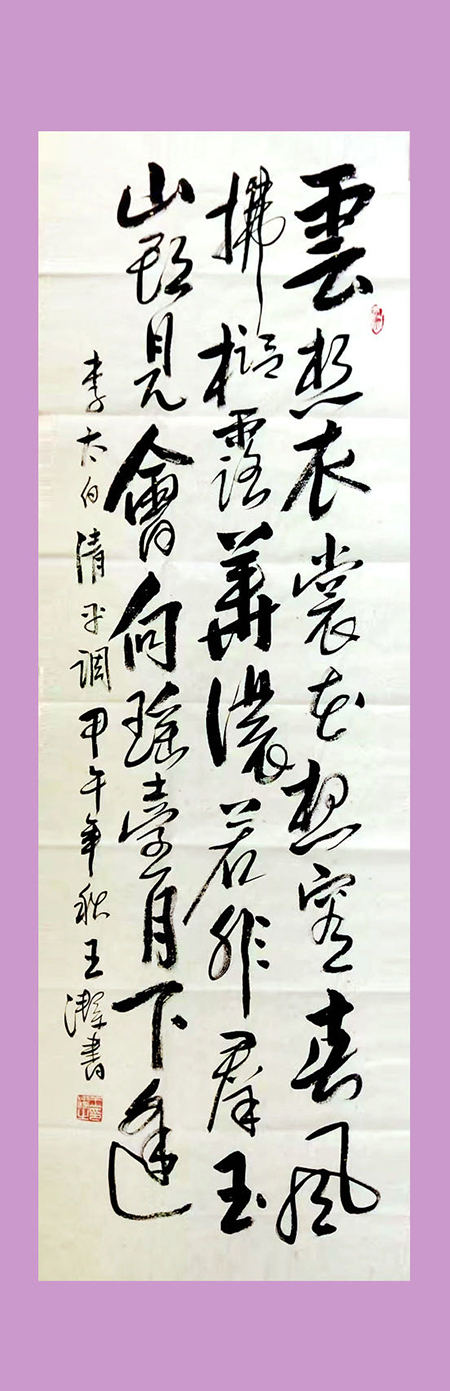 雲想衣裳花想容春風
拂檻露華濃若非羣玉
山頭見會向瑤臺月下逢
李太白清平调甲午年秋王澤書